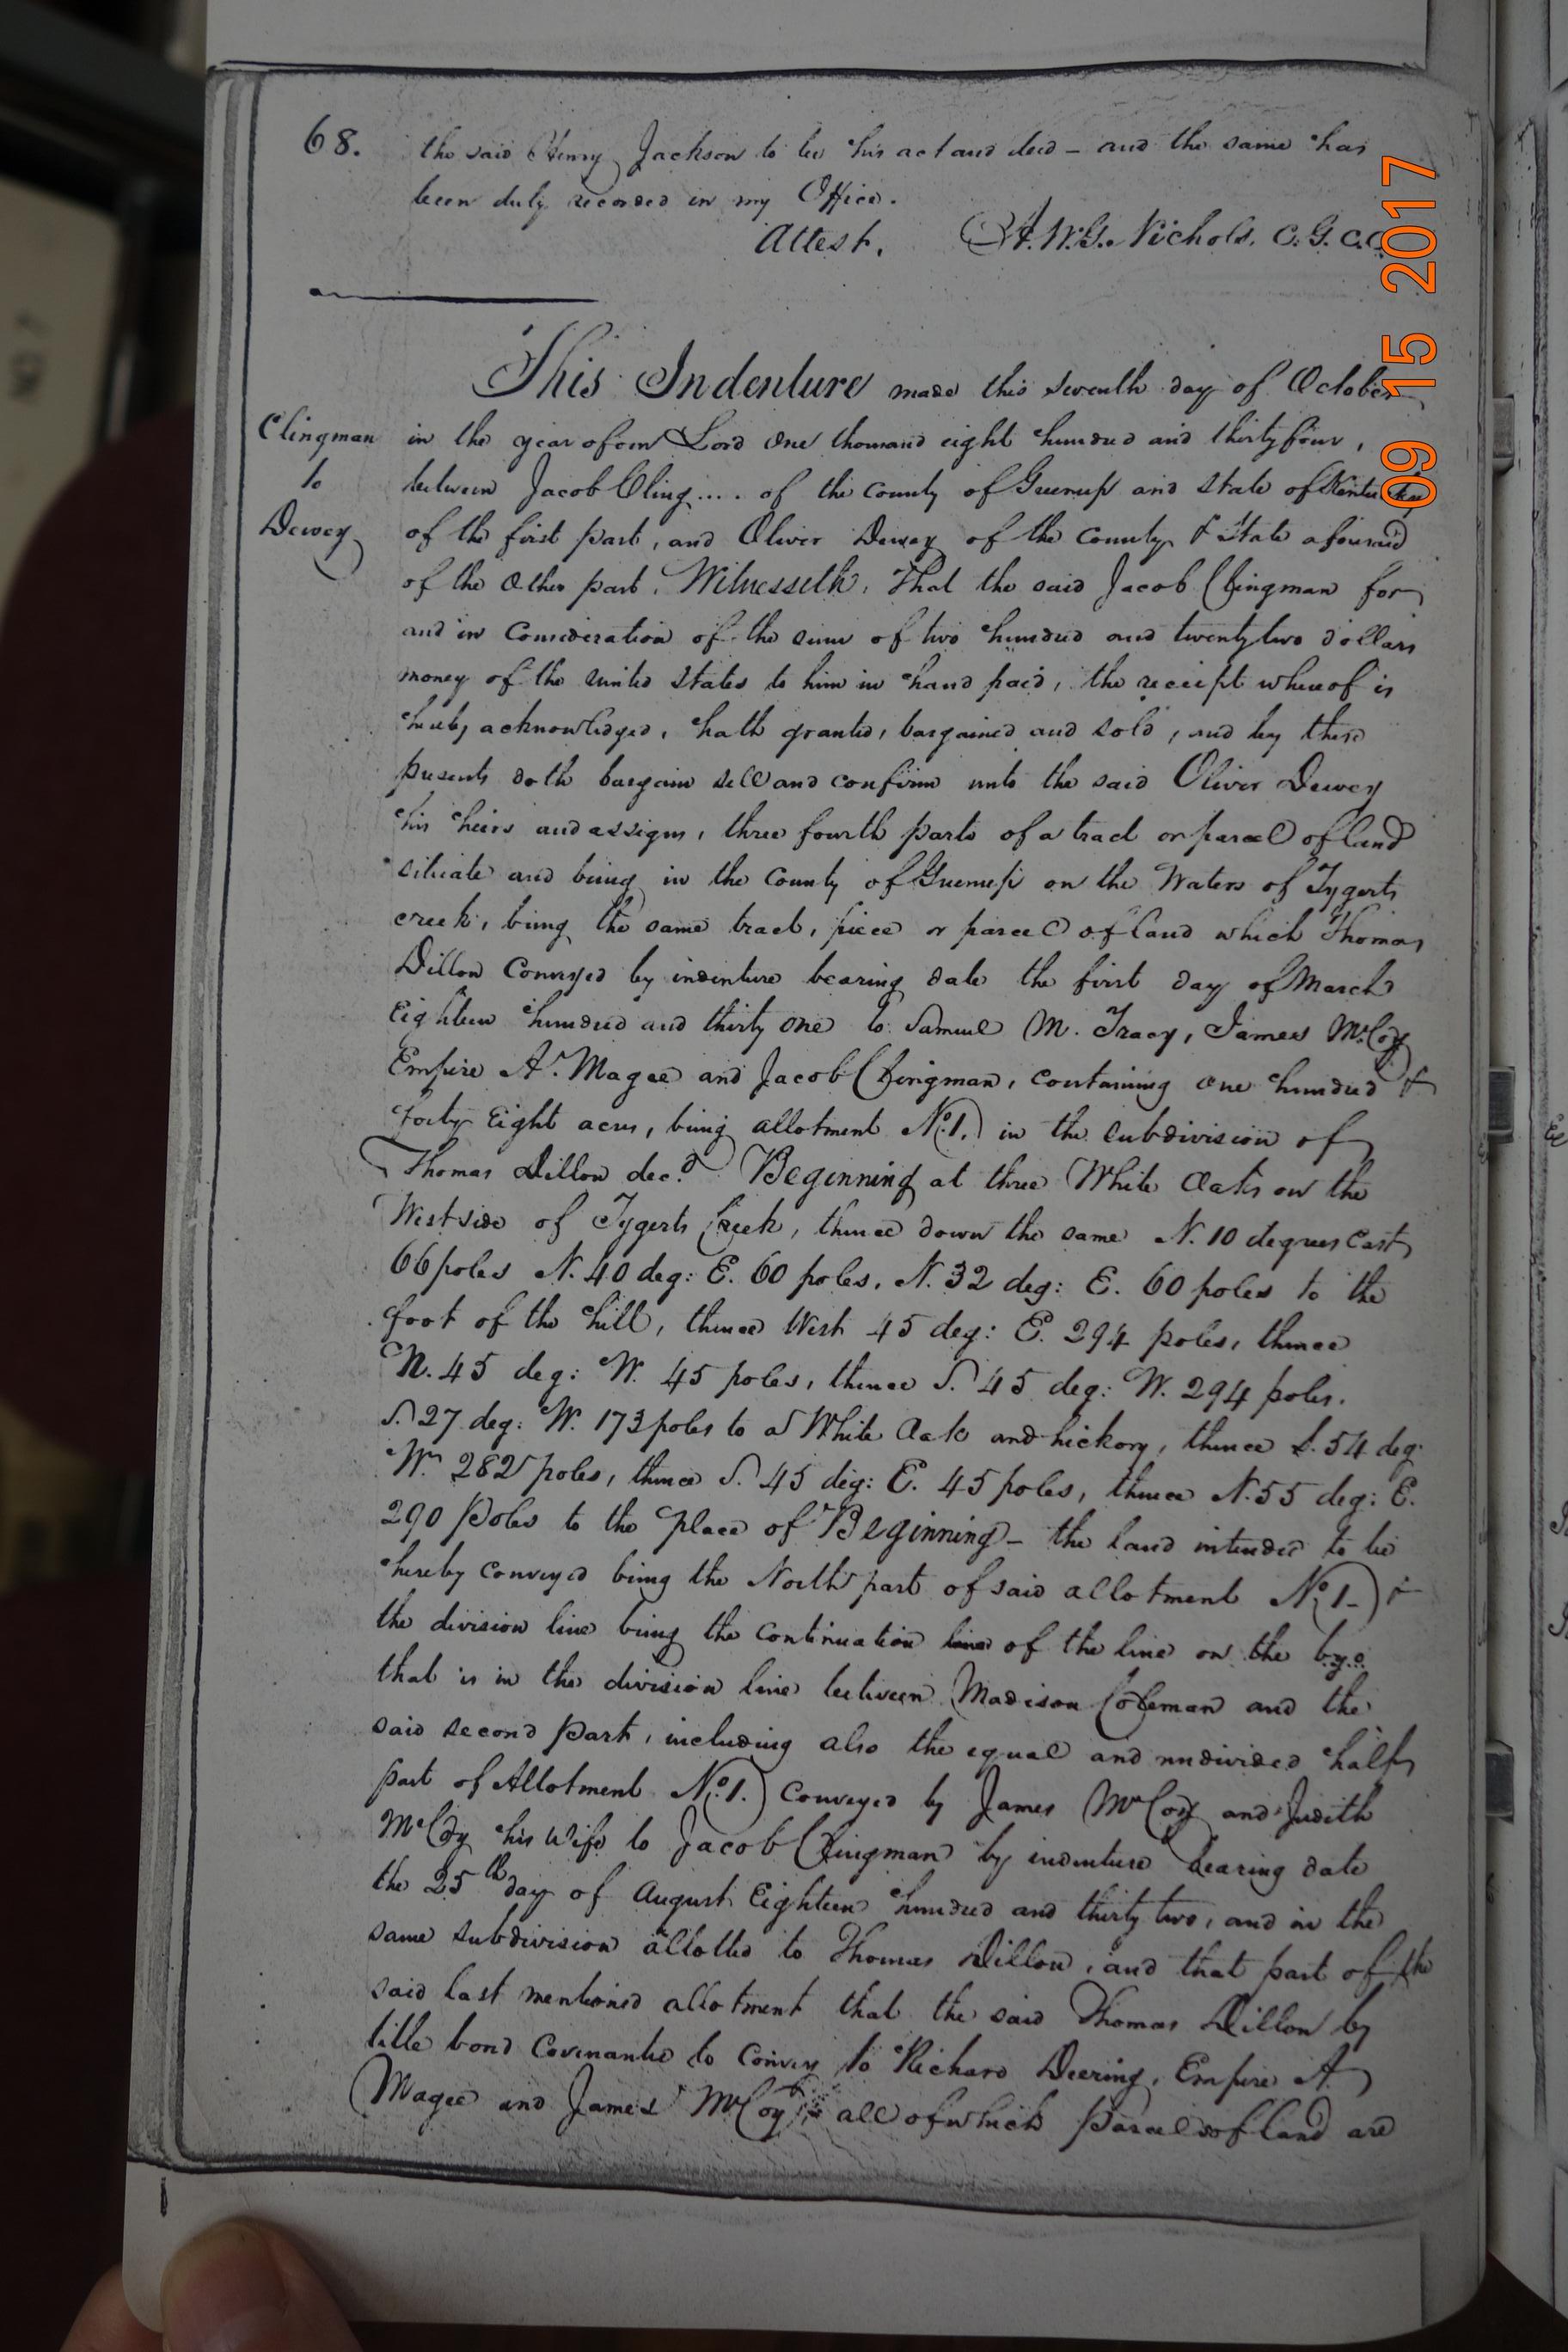 68. the said Henry Jackson to be his act and deed – and the same has
been duly recorded in my Office.
Attest. W.G. Nichols. C.G.C.C.
This Indenture made this seventh day of October
Clingman in the year of our Lord One thousand eight hundred and thirty four,
to between Jacob Cling.... of the County of Greenup and State of Kentucky
Dewey of the first part, and Oliver Dewey of the County & State aforesaid
of the Other part. Witnesseth, That the said Jacob Clingman for
and in Consideration of the sum of two hundred and twenty two dollars
money of the united States to him in hand paid, the receipt whereof is
hereby acknowledged, hath granted, bargained and sold, and by these
presents doth bargain sell and confirm unto the said Oliver Dewey
his heirs and assigns, three fourth parts of a tract or parcel of land
situate and being in the County of Greenup on the Waters of Tygerts
creek, being the same tract, piece or parcel of land which Thomas
Dillon Conveyed by indenture bearing date the first day of March
Eighteen hundred and thirty One to Samuel M. Tracy, James McCoy
Empire A. Magee and Jacob Clingman, containing One hundred &
forty Eight acres, being allotment No. 1. in the subdivision of
Thomas Dillon decd. Beginning at three White Oaks on the
West side of Tygerts Creek, thence down the same N. 10 degrees East
66 poles N. 40 deg: E. 60 poles, N. 32 deg: E. 60 poles to the
foot of the hill, thence West 45 deg: E. 294 poles, thence
N. 45 deg: W. 45 poles, thence S. 45 deg: W. 294 poles.
S. 27 deg: W. 173 poles to a White Oak and hickory, thence S. 54 deg:
W. 282 poles, thence S. 45 deg: E. 45 poles, thence N. 55 deg: E.
290 Poles to the place of Beginning – the land intended to be
hereby conveyed being the North part of said allotment No. 1 –
the division line being the Continuation line of the line on the bye
that is in the division line between Madison Coleman and the
said second Part, including also the equal and undivided half
part of Allotment No. 1. Conveyed by James McCoy and Judith
McCoy his Wife to Jacob Clingman by indenture bearing date
the 25th day of August Eighteen hundred and thirty two, and in the
same subdivision allotted to Thomas Dillon, and that part of the
said last mentioned allotment that the said Thomas Dillon by
title bond Covenanted to Convey to Richard Deering, Empire A.
Magee and James McCoy, all of which Parcels of land are
09 15 2017